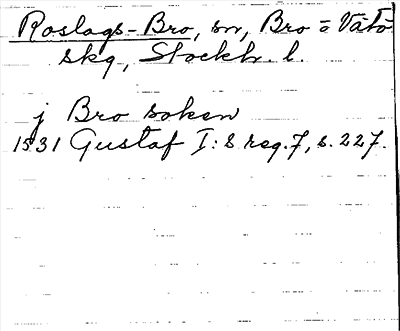 Roslags-Bro, sn, Bro o Vätö
skg, Stockh. l.
j Bro soken
1531 Gustaf I:s reg. 7, s. 227.